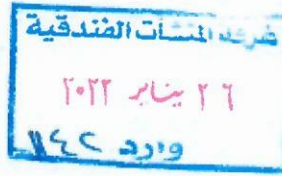 شركة المنشآت الفندقية
٢٦ يناير ٢٠٢٢
وارد ١١٤٢